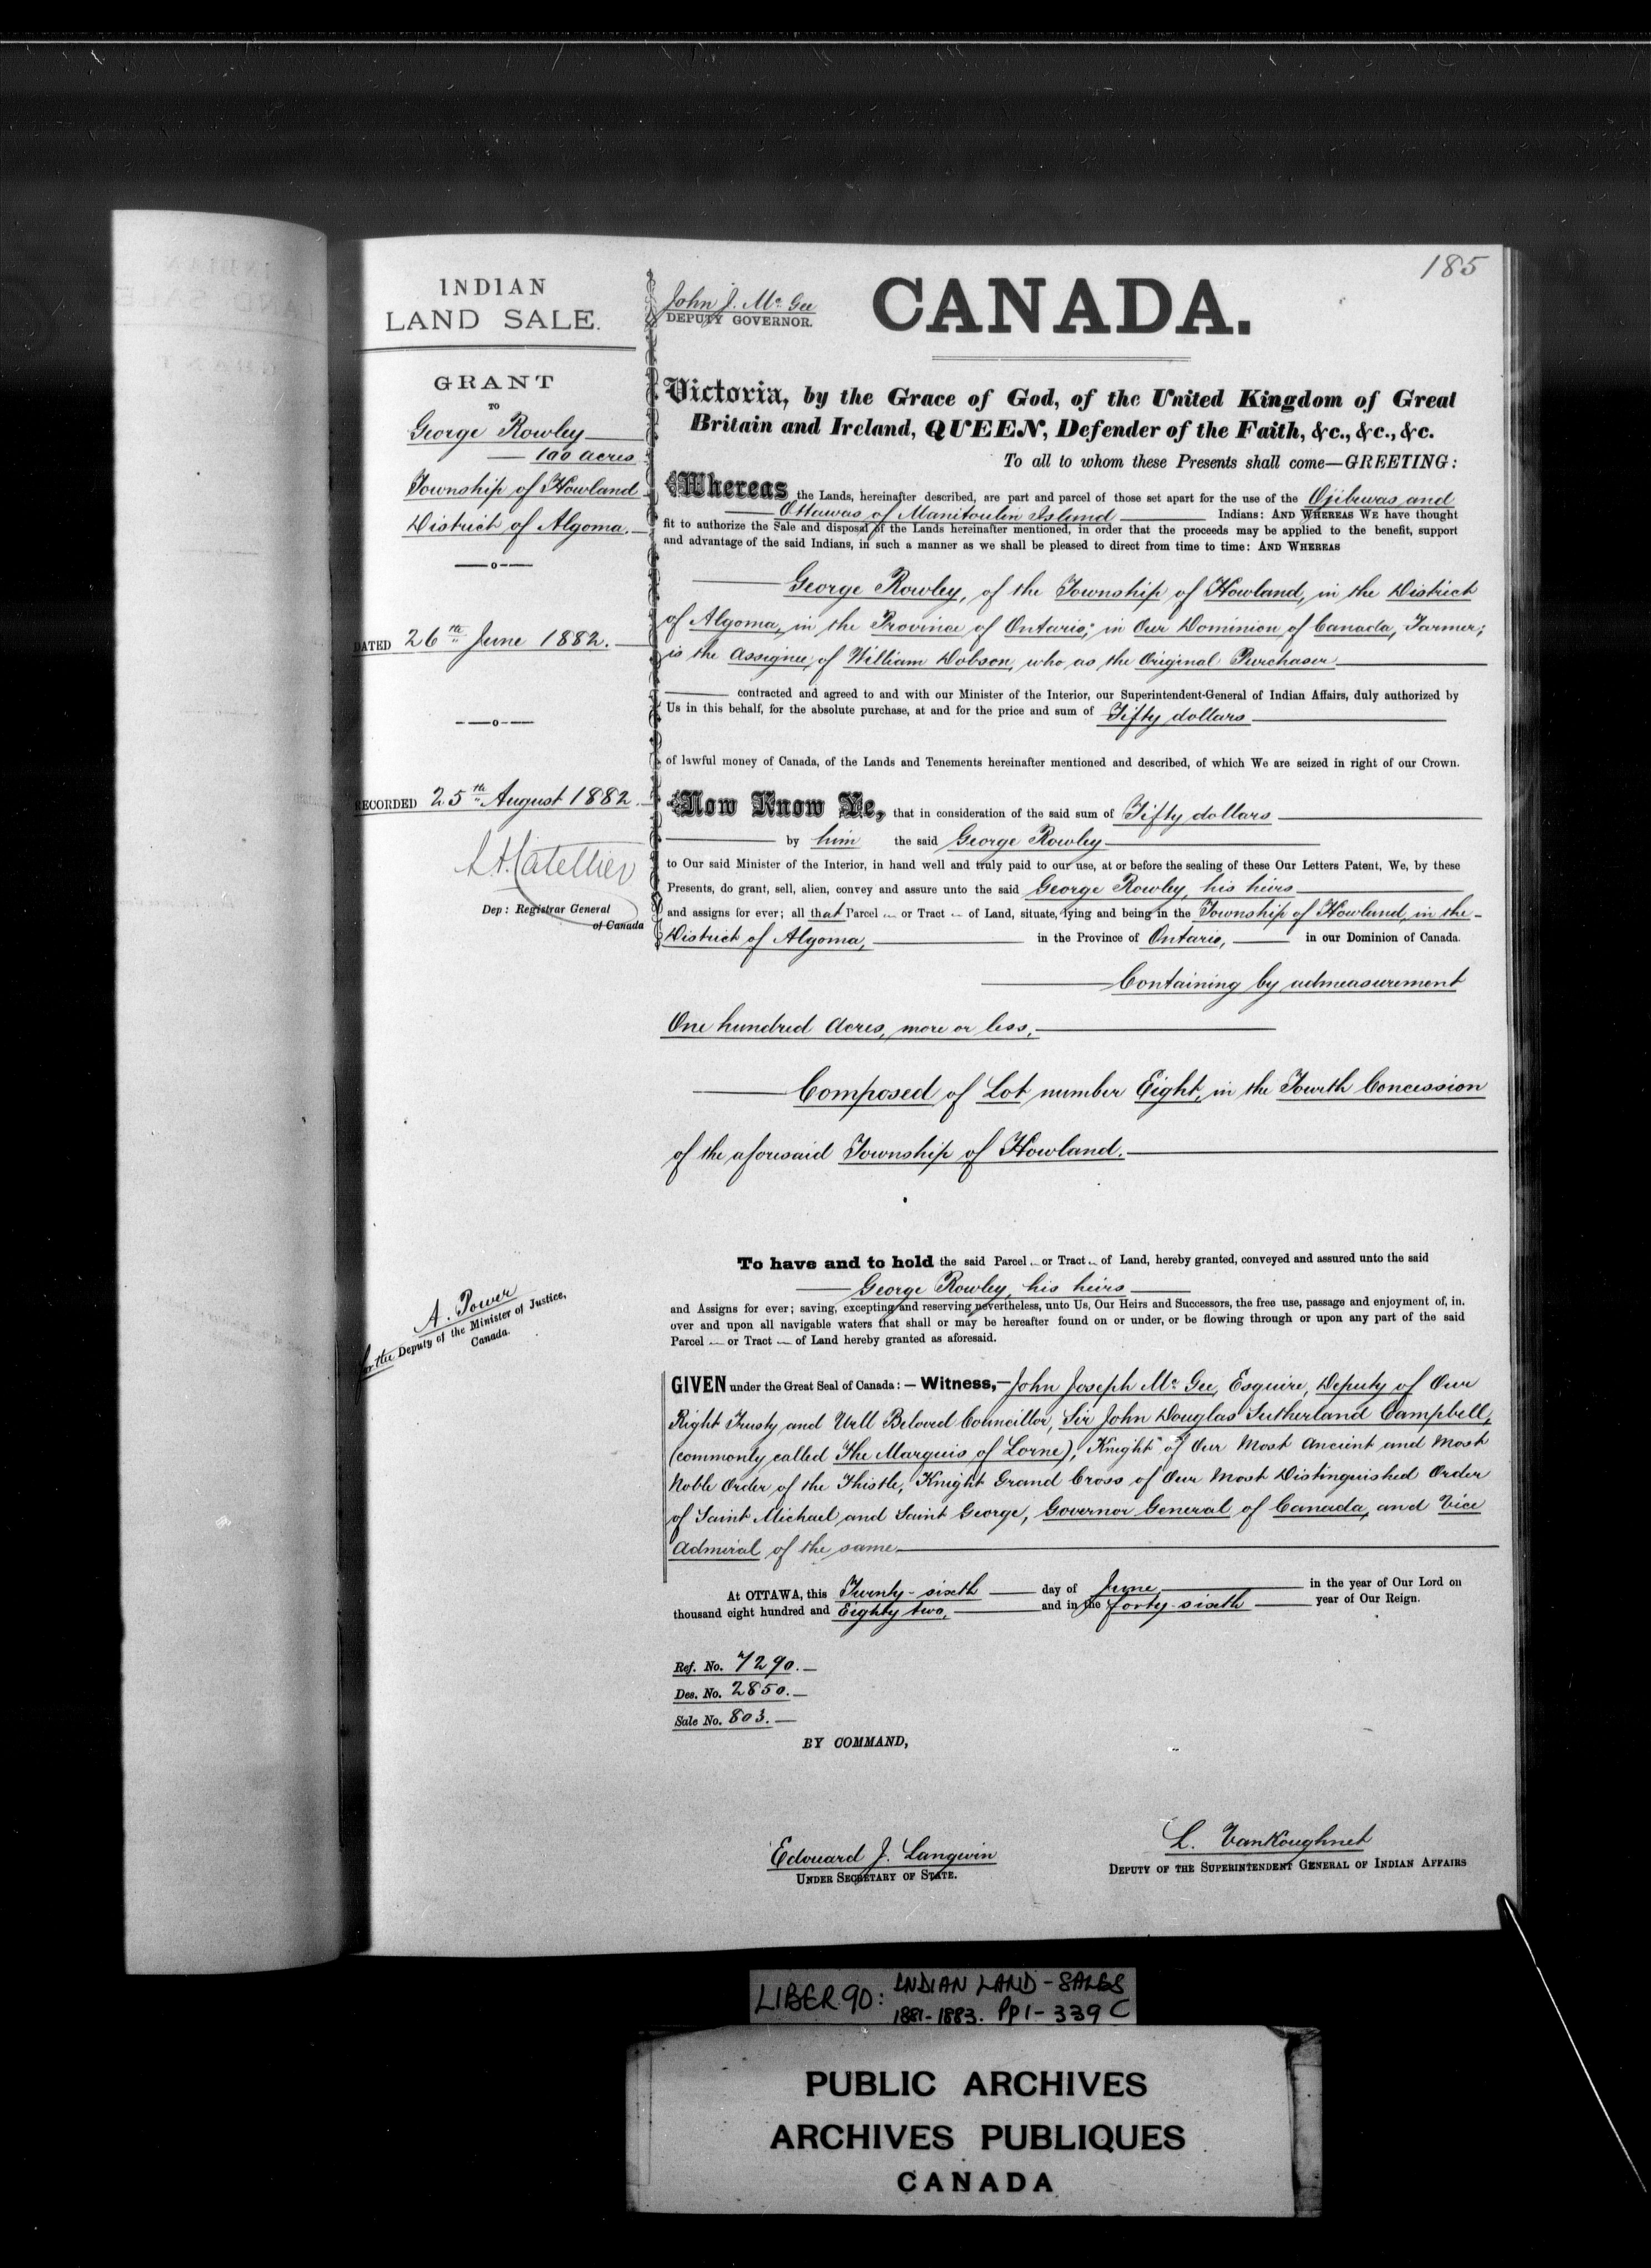 185
INDIAN
LAND SALE.
GRANT
TO
George Rowley
100 acres
Township of Howland
District of Algoma.
DATED 26th June 1882.
RECORDED 25th August 1882.
Dep: Registrar General
of Canada
A. Power
for the Deputy of the Minister of Justice,
Canada.
John J. McGee
DEPUTY GOVERNOR.
CANADA.
Victoria, by the Grace of God, of the United Kingdom of Great
Britain and Ireland, QUEEN, Defender of the Faith, &c., &c., &c.
To all to whom these Presents shall come—GREETING:
Whereas the Lands, hereinafter described, are part and parcel of those set apart for the use of the Ojibwas and
Ottawas of Manitoulin Island Indians: AND WHEREAS WE have thought
fit to authorize the Sale and disposal of the Lands hereinafter mentioned, in order that the proceeds may be applied to the benefit, support
and advantage of the said Indians, in such a manner as we shall be pleased to direct from time to time: AND WHEREAS
George Rowley, of the Township of Howland, in the District
of Algoma, in the Province of Ontario; in Our Dominion of Canada, Farmer;
is the Assignee, of William Dobson, who as the Original Purchaser
contracted and agreed to and with our Minister of the Interior, our Superintendent-General of Indian Affairs, duly authorized by
Us in this behalf, for the absolute purchase, at and for the price and sum of Fifty dollars
of lawful money of Canada, of the Lands and Tenements hereinafter mentioned and described, of which We are seized in right of our Crown.
Now Know Ye, that in consideration of the said sum of Fifty dollars
by him the said George Rowley
to Our said Minister of the Interior, in hand well and truly paid to our use, at or before the sealing of these Our Letters Patent, We, by these
Presents, do grant, sell, alien, convey and assure unto the said George Rowley, his heirs
and assigns for ever; all that Parcel or Tract of Land, situate, lying and being in the Township of Howland, in the
District of Algoma, in the Province of Ontario, in our Dominion of Canada.
Containing by admeasurement
One hundred Acres, more or less,
Composed of Lot number Eight, in the Fourth Concession
of the aforesaid Township of Howland.
To have and to hold the said Parcel or Tract of Land, hereby granted, conveyed and assured unto the said
George Rowley, his heirs
and Assigns for ever; saving, excepting and reserving nevertheless, unto Us, Our Heirs and Successors, the free use, passage and enjoyment of, in.
over and upon all navigable waters that shall or may be hereafter found on or under, or be flowing through or upon any part of the said
Parcel or Tract of Land hereby granted as aforesaid.
GIVEN under the Great Seal of Canada: — Witness,— John Joseph McGee, Esquire, Deputy of Our
Right Trusty and Well Beloved Councillor, Sir John Douglas Sutherland Campbell,
(commonly called The Marquis of Lorne), Knight of Our Most Ancient and Most
Noble Order of the Thistle, Knight Grand Cross of Our Most Distinguished Order
of Saint Michael and Saint George, Governor General of Canada, and Vice
Admiral of the same
At OTTAWA, this Twenty-sixth day of June, in the year of Our Lord on
thousand eight hundred and Eighty two, and in the forty-sixth year of Our Reign.
Ref. No. 7290.
Des. No. 2850.
Sale No. 803.
BY COMMAND,
Edouard J. Langevin
UNDER SECRETARY OF STATE.
L. VanKoughnet
DEPUTY OF THE SUPERINTENDENT GENERAL OF INDIAN AFFAIRS
LIBER.90: INDIAN LAND-SALES
1881-1883. Pp 1-339 C
PUBLIC ARCHIVES
ARCHIVES PUBLIQUES
CANADA